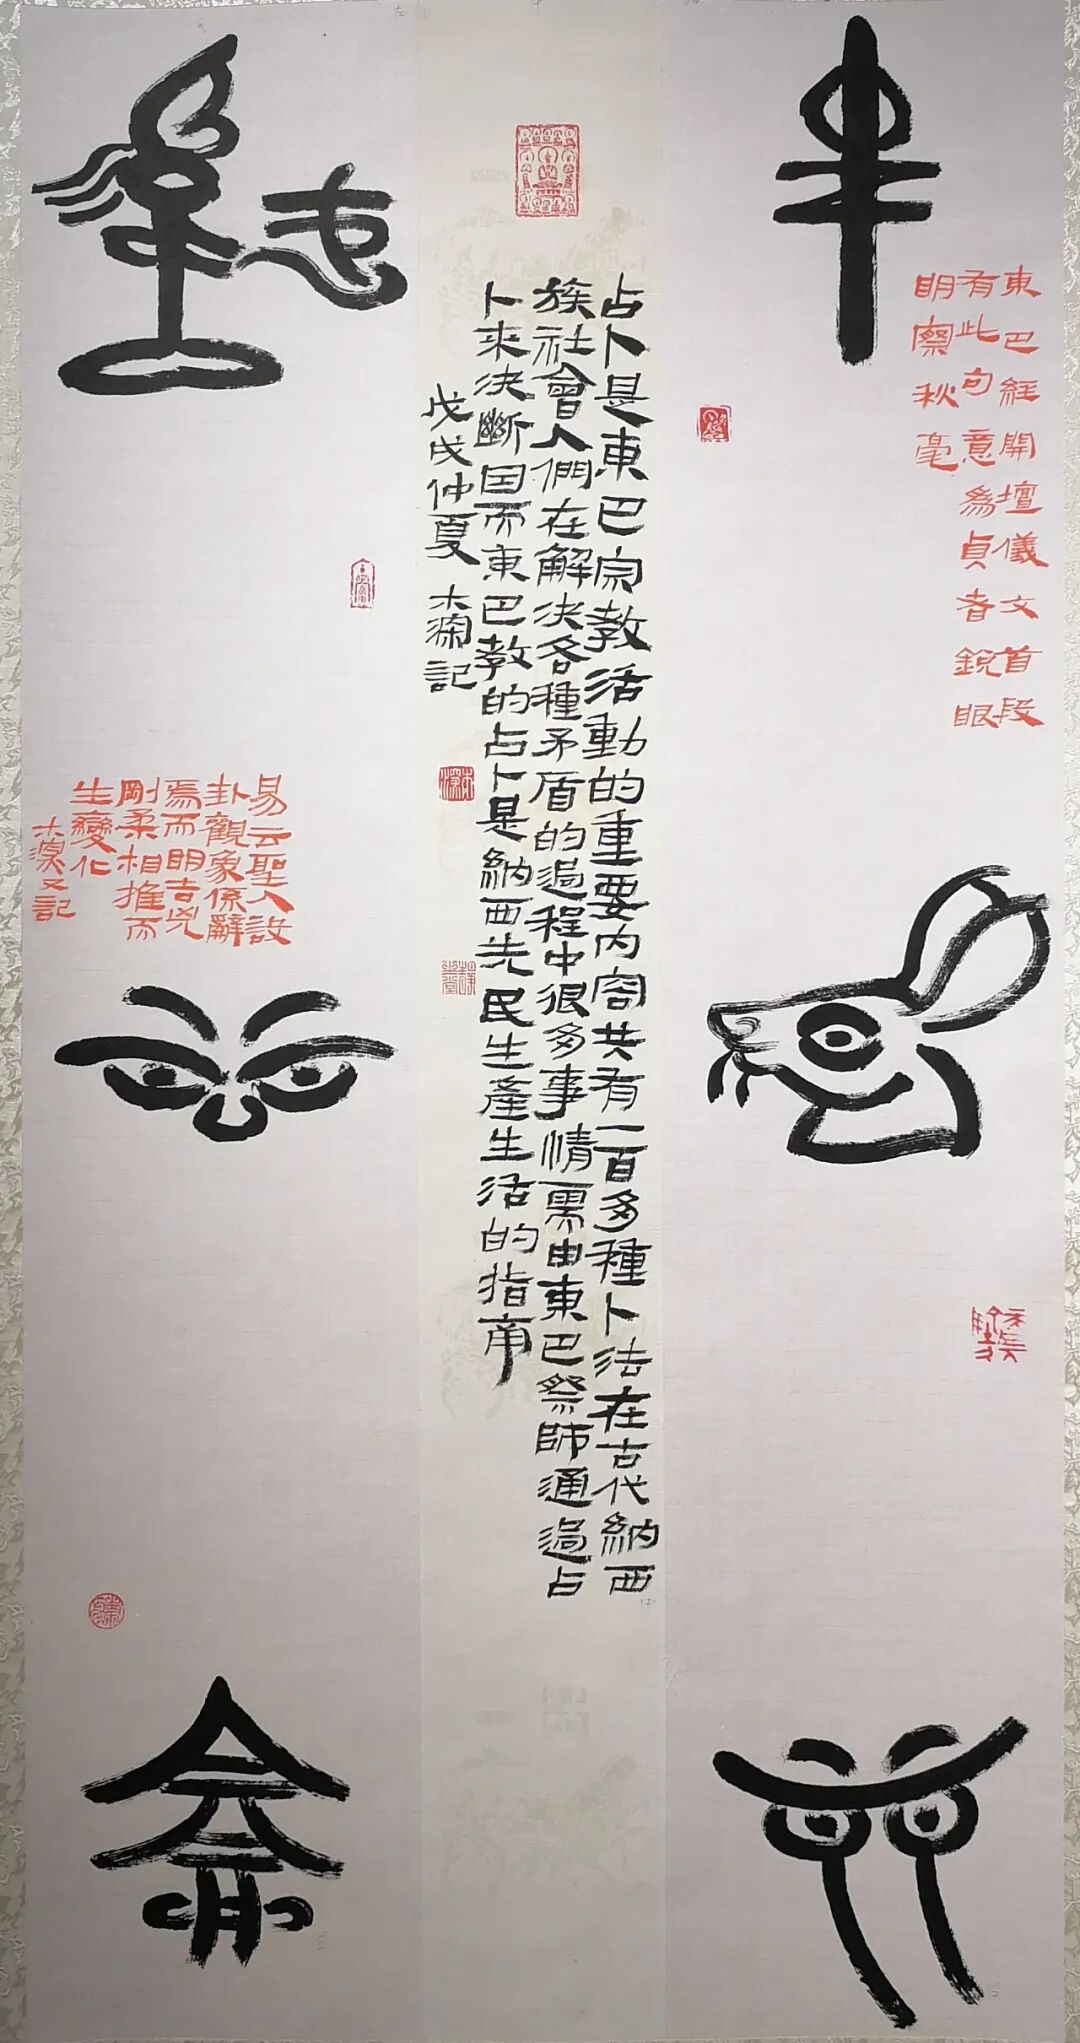 東巴經開壇儀文首段
有此句意為貞者銳眼
明察秋毫
占卜是東巴宗教活動的重要内容共有一百多種卜法在古代納西
族社會人們在解決各種矛盾的過程中很多事情需由東巴祭師通過占
卜來決斷因而東巴教的占卜是納西先民生產生活的指南
戊戌仲夏 木深記
易云聖人設
卦觀象係辭
焉而明吉凶
剛柔相推而
生變化
木深又記